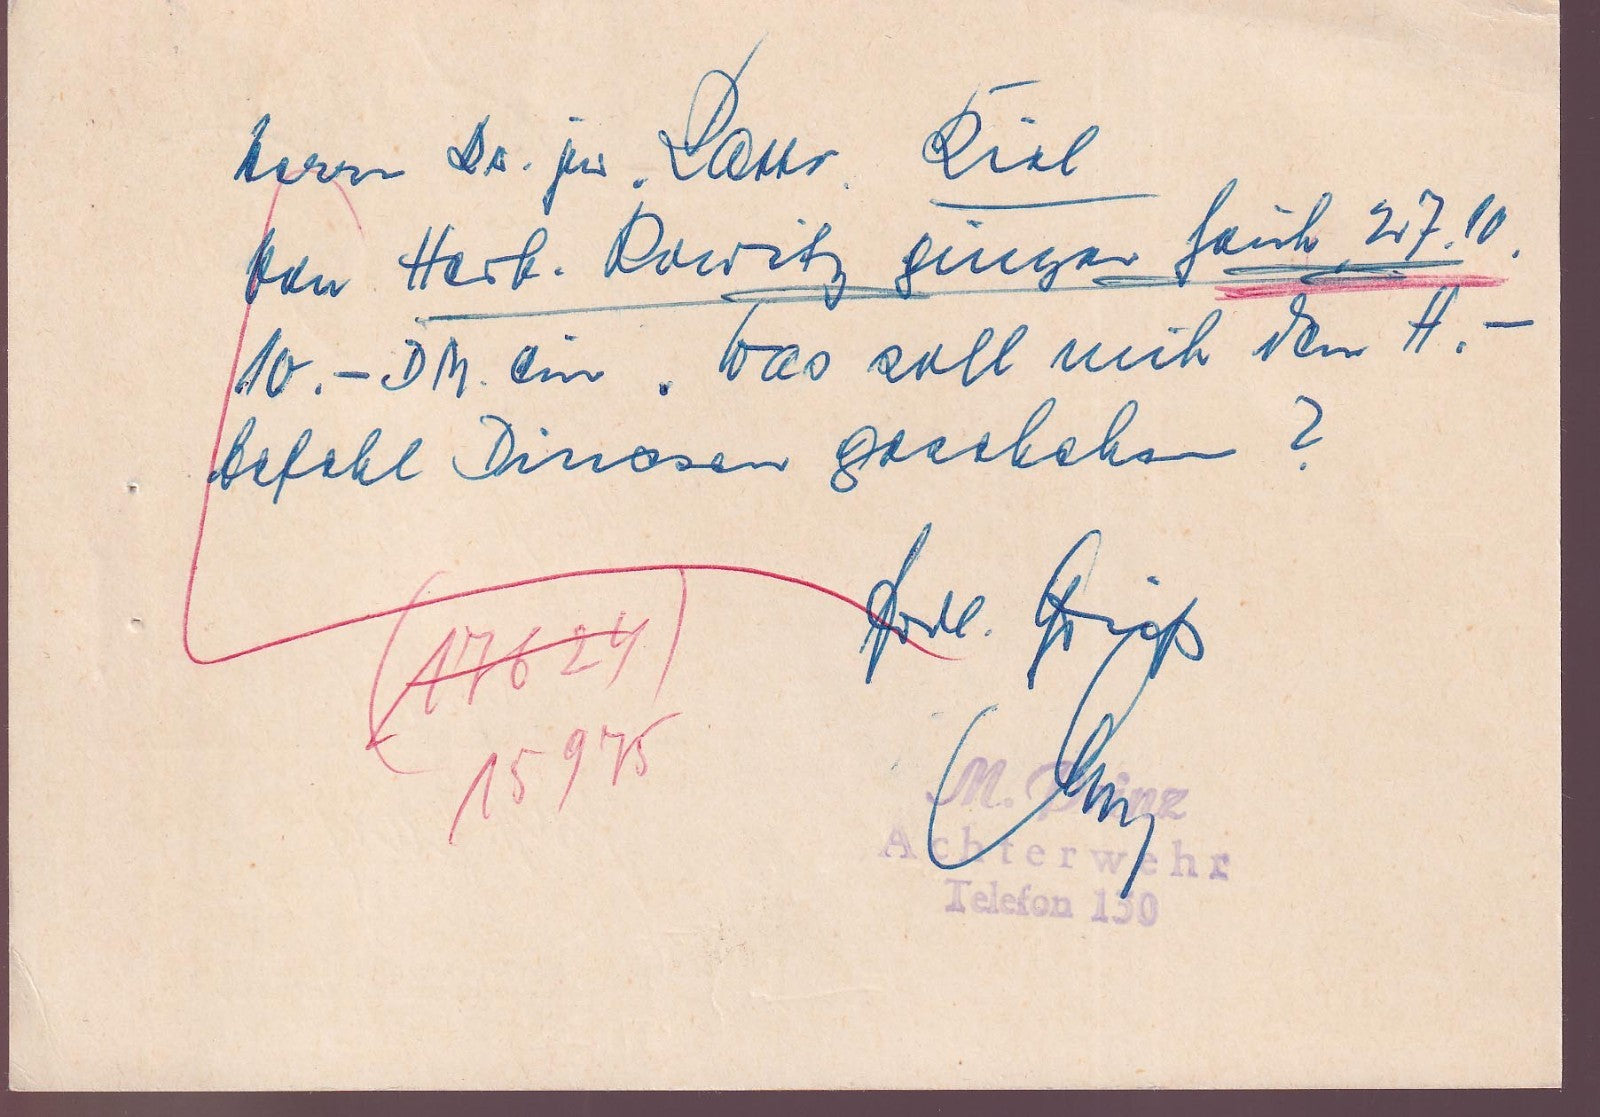 Herrn Dr. jur. Kiel
von Herb. Rowitz gingen heute 27.10.
10.- DM. ein. Was soll mit dem H.-
befehl Dinesen geschehen?
frdl. Gruß
(17624)
15975
M. Prinz
Achterwehr
Telefon 130